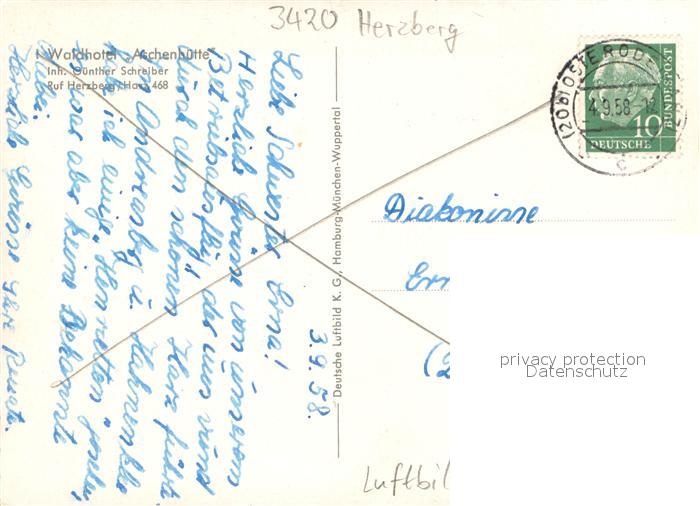 3420 Herzberg
Waldhotel „Aschenhütte"
Inh. Günther Schreiber
Ruf Herzberg/Harz 468
3.9.58.
Liebe Schwester Erna!
Herzliche Grüsse von unserem
Betriebsausflug, der uns rund
durch den schönen Harz führt.
In Andreasberg u. Hahnenklee
habe ich einige Henrietten gesehen,
es war aber keine Bekannte
dabei.
Herzliche Grüsse Ihre
Deutsche Luftbild K. G., Hamburg-München-Wuppertal
(20b) OSTERODE
4.9.58.-12
c
10
DEUTSCHE
BUNDESPOST
Diakonisse
Ern
(2
privacy protection
Datenschutz
Luftbil